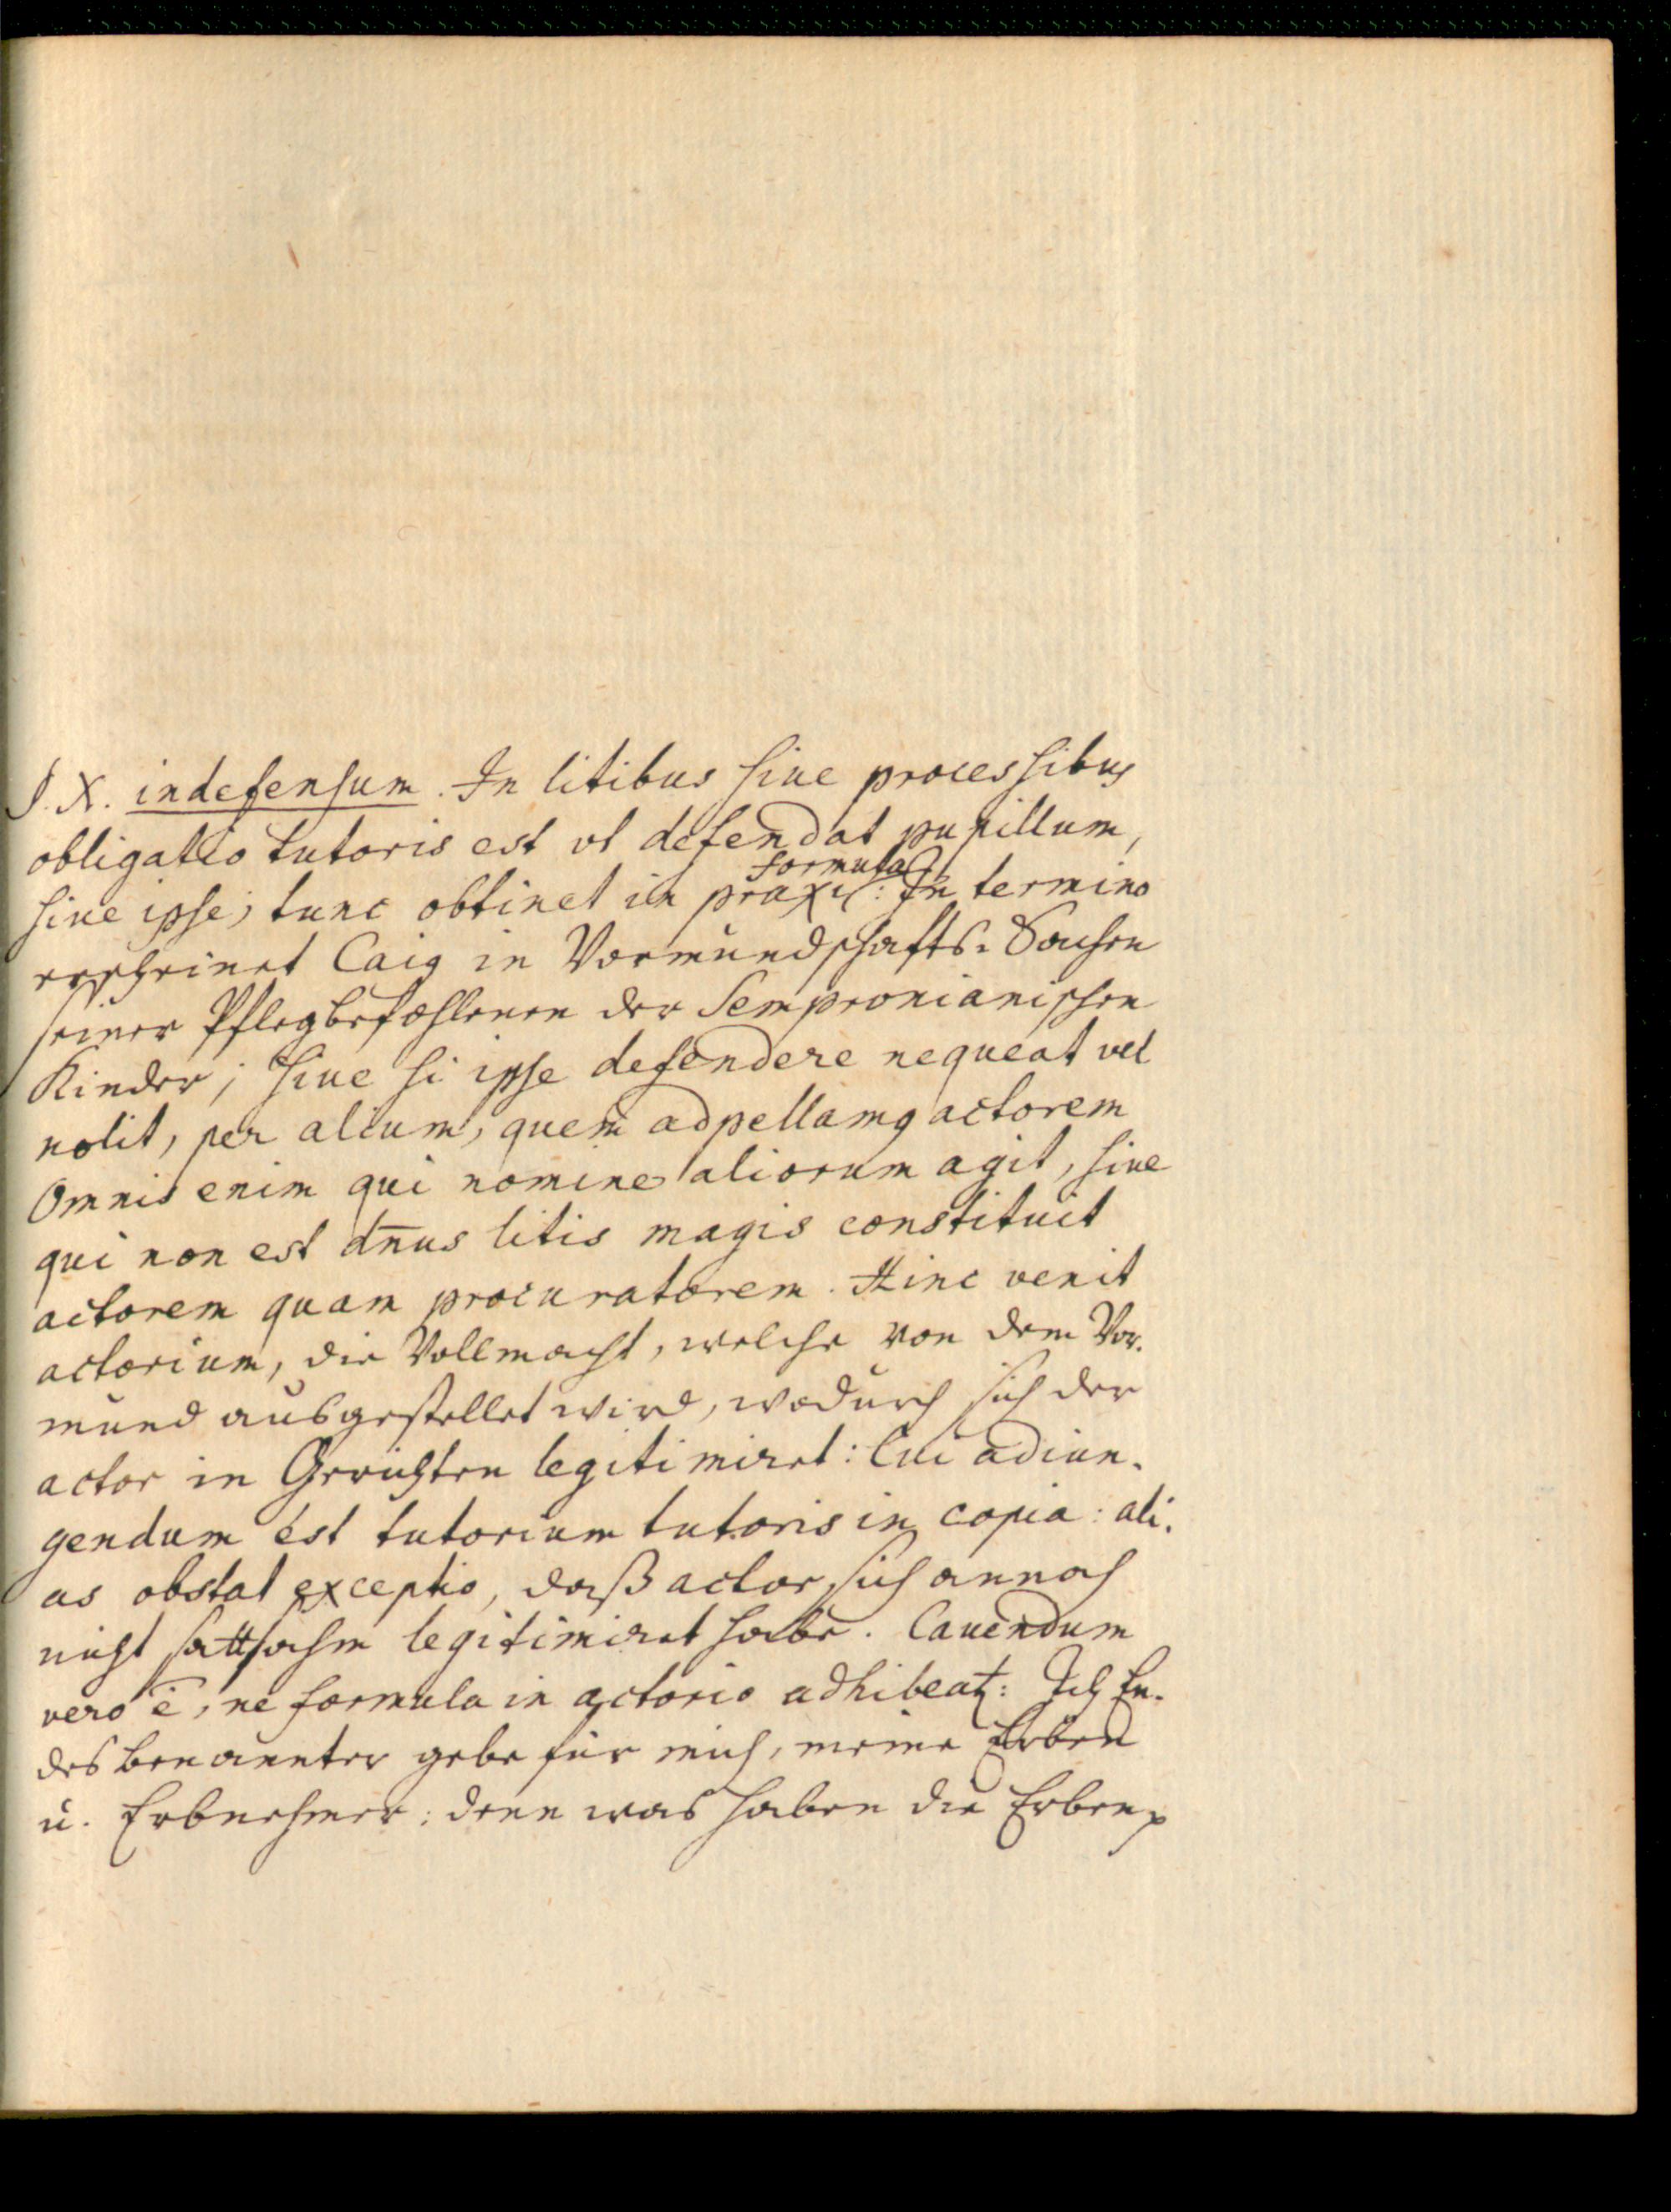 §. X. indefensum. In litibus sive processibus
obligatio tutoris est vt defendat pupillum,
sive ipse; tunc obtinet in praxi formula: In termino
erscheinet Caig in Vormundschafts-Sachen
seiner Pflegbefohlenen der Sempronianischen
Kinder; sive si ipse defendere nequeat vel
nolit, per alium, quem adpellamg actorem
Omnis enim qui nomine aliorum agit, sive
qui non est dn̄us litis magis constituit
actorem quam procuratorem. Hinc venit
actorium, die Vollmacht, welche von dem Vor-
mund ausgestellet wird, wodurch sich der
actor in Gerichten legitimiret: Cui adiun-
gendum est tutorium tutoris in copia: ali-
as obstat exceptio, daß actor sich annoch
nicht sattsahm legitimiret habe. Cauendum
vero ē, ne formula in actorio adhibeatꝛ: Ich En-
des benannter gebe für mich, meine Erben
u. Erbnehmer: denn was haben die Erben